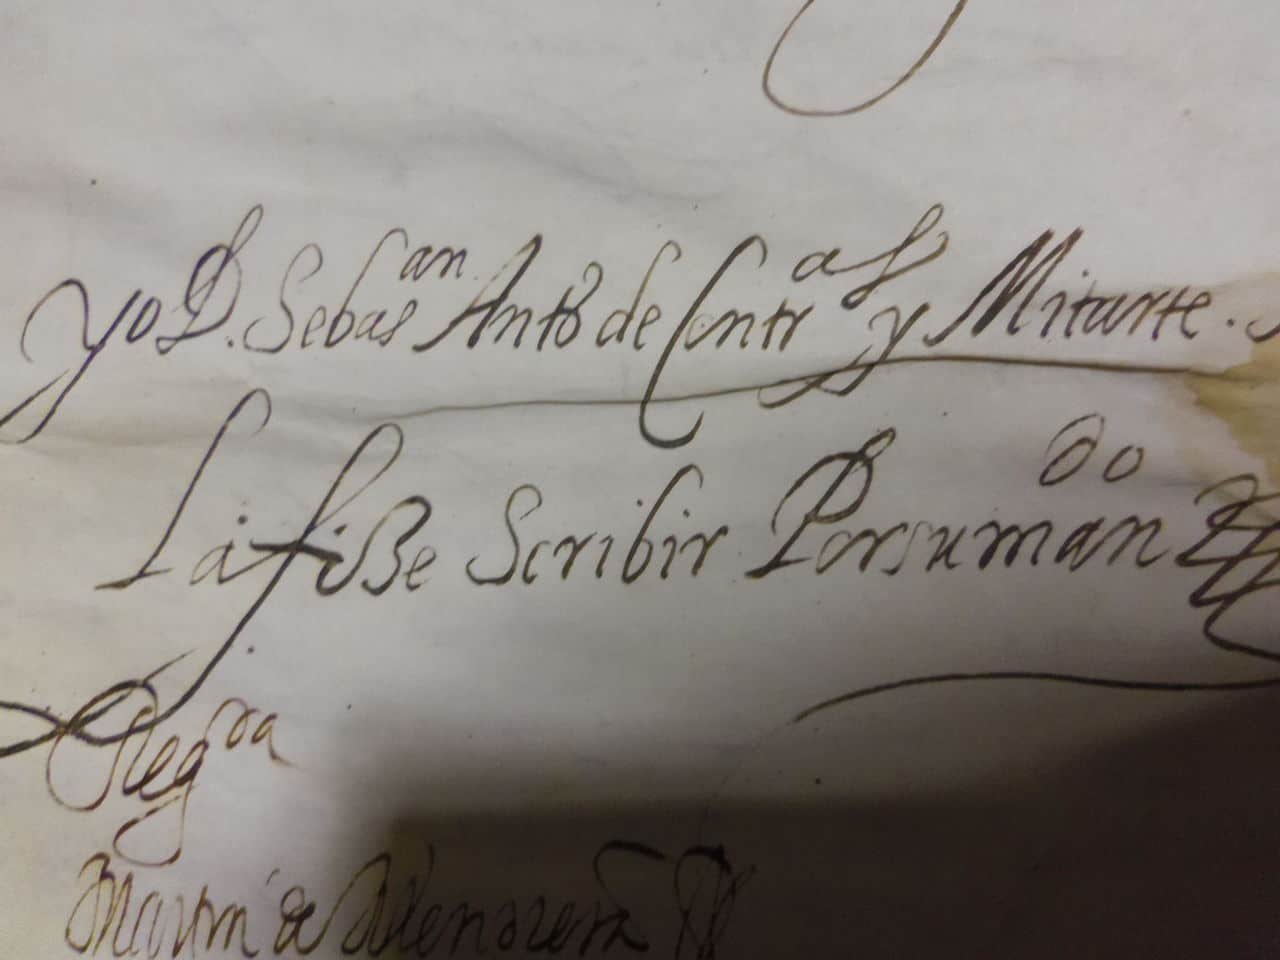 Yo D. Sebas.an Anto de Contr.as y Mitarte.
La fize Scribir Por su man.do
Reg.da
Martin de